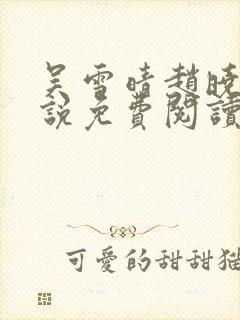 吴雪晴趙曉
說免費閱讀
可愛的甜甜猫